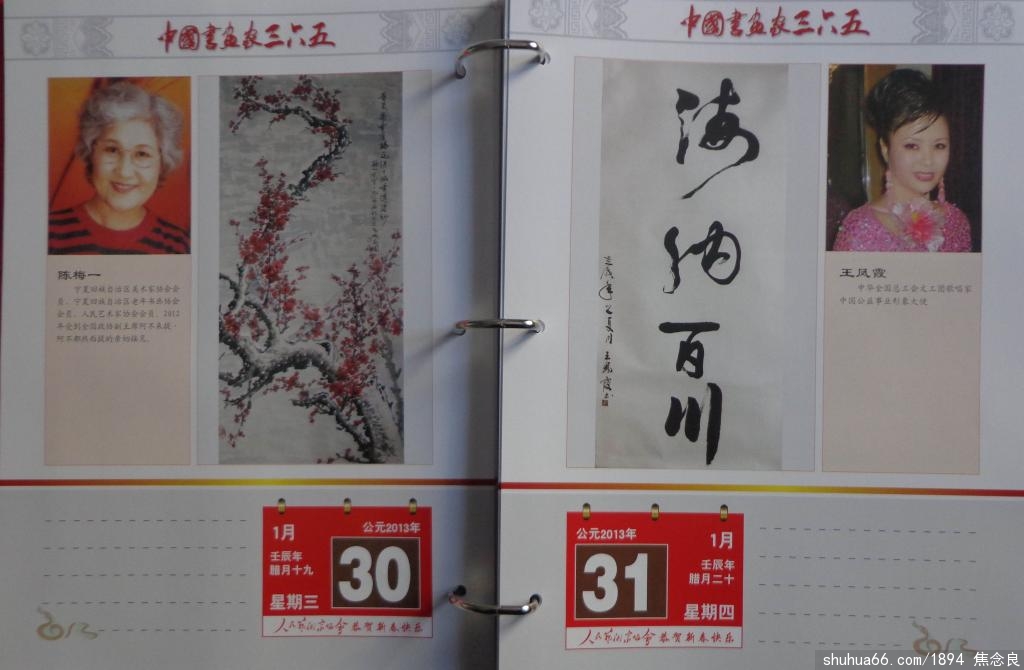 中國書畫家三六五
陈梅一
宁夏回族自治区美术家协会会
员、宁夏回族自治区老年书画协会
会员、人民艺术家协会会员。2012
年受到全国政协副主席阿不来提·
阿不都热西提的亲切接见。
1月
公元2013年
壬辰年
腊月十九
30
星期三
人民艺术家协会 恭贺新春快乐
2013
中國書畫家三六五
海纳百川
王凤霞
中华全国总工会文工团歌唱家
中国公益事业形象大使
公元2013年
1月
31
壬辰年
腊月二十
星期四
人民艺术家协会 恭贺新春快乐
2013
shuhua66.com/1894 焦念良